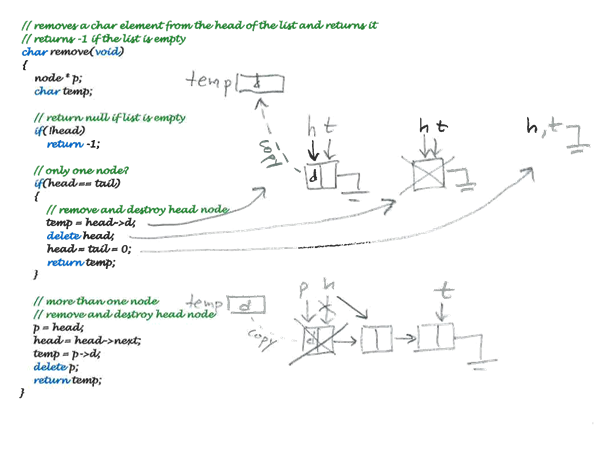 // removes a char element from the head of the list and returns it
// returns -1 if the list is empty
char remove(void)
{
node * p;
char temp;
// return null if list is empty
if(!head)
return -1;
// only one node?
if(head == tail)
{
// remove and destroy head node
temp = head->d;
delete head;
head = tail = 0;
return temp;
}
// more than one node
// remove and destroy head node
p = head;
head = head->next;
temp = p->d;
delete p;
return temp;
}
temp d
h t
copy
d
h t
h, t
temp d
p h
t
copy
d